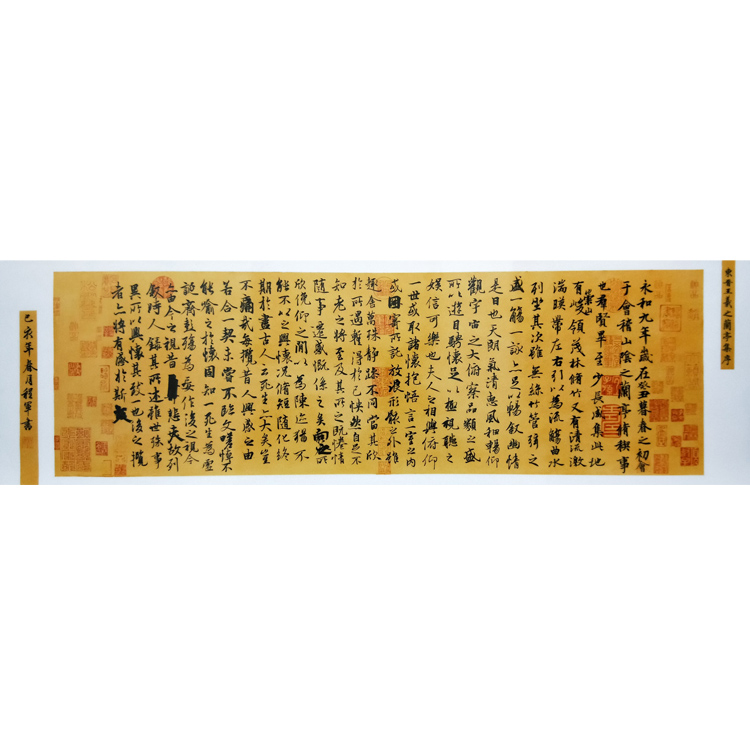 東晋王羲之蘭亭集序
永和九年歲在癸丑暮春之初會
于會稽山陰之蘭亭脩稧事
也羣賢畢至少長咸集此地
有崇山峻領茂林脩竹又有清流激
湍暎帶左右引以為流觴曲水
列坐其次雖無絲竹管弦之
盛一觴一詠亦足以暢敘幽情
是日也天朗氣清惠風和暢仰
觀宇宙之大俯察品類之盛
所以遊目騁懷足以極視聽之
娛信可樂也夫人之相與俯仰
一世或取諸懷抱悟言一室之內
或因寄所託放浪形骸之外雖
趣舍萬殊靜躁不同當其欣
於所遇蹔得於己怏然自足不
知老之將至及其所之既惓情
隨事遷感慨係之矣向之所
欣俛仰之間以為陳迹猶不
能不以之興懷況脩短隨化終
期於盡古人云死生亦大矣豈
不痛哉每攬昔人興感之由
若合一契未嘗不臨文嗟悼不
能喻之於懷固知一死生為虛
誕齊彭殤為妄作後之視今
亦由今之視昔悲夫故列
敘時人錄其所述雖世殊事
異所以興懷其致一也後之攬
者亦將有感於斯文
己亥年春月程軍書